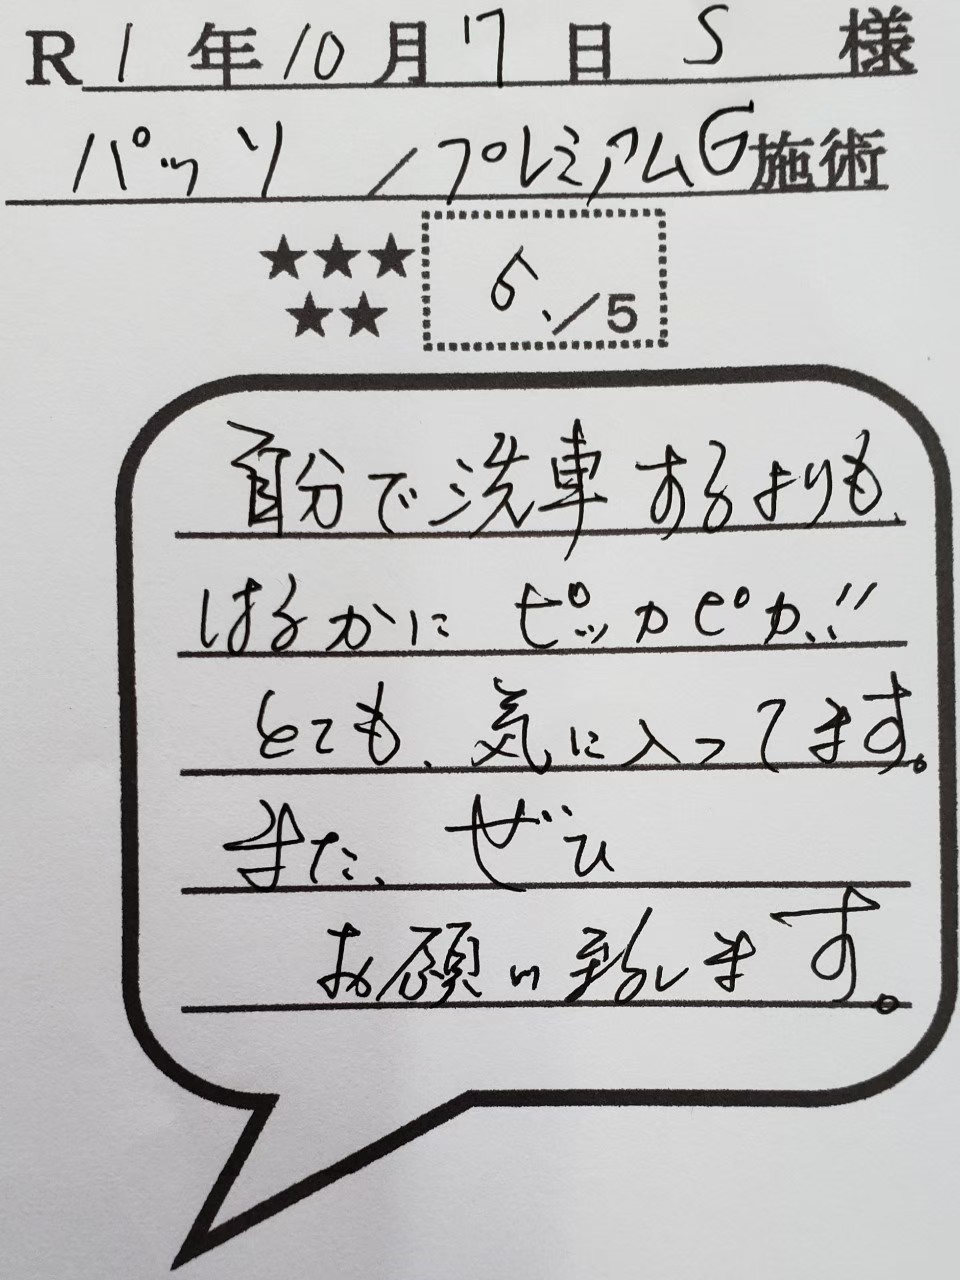 R 1 年 10 月 17 日 S 様
パッソ / プレミアムG 施術
★★★
★★ 5./5
自分で洗車するよりも、
はるかに ピッカピカ!!
とても、気に入ってます。
また、ぜひ
お願い致します。